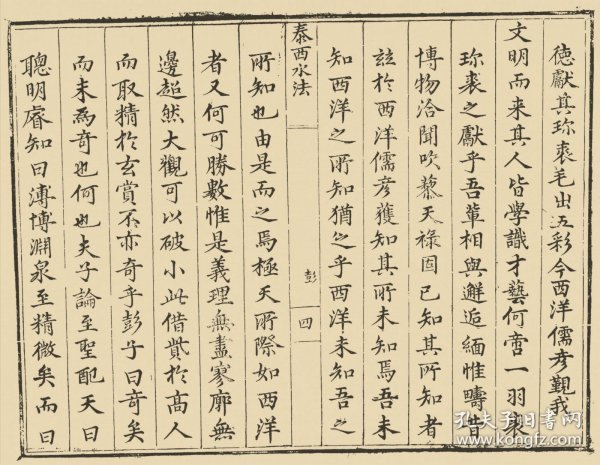 德獻其珎裘毛出五彩今西洋儒彥覲我
文明而来其人皆學識才藝何啻一羽家
珎裘之獻乎吾軰相與邂逅緬惟疇昔
博物洽聞吹藜天祿固已知其所知者
玆於西洋儒彥獲知其所未知焉吾未
知西洋之所知猶之乎西洋未知吾之
泰西水法
彭
四
所知也由是而之焉極天所際如西洋
者又何可勝數惟是義理無盡寥廓無
邊超然大觀可以破小此借貲於高人
而取精於玄賞不亦奇乎彭子曰奇矣
而未為奇也何也夫子論至聖配天曰
聰明睿知曰溥博淵泉至精微矣而曰
孔夫子旧书网
www.kongfz.com